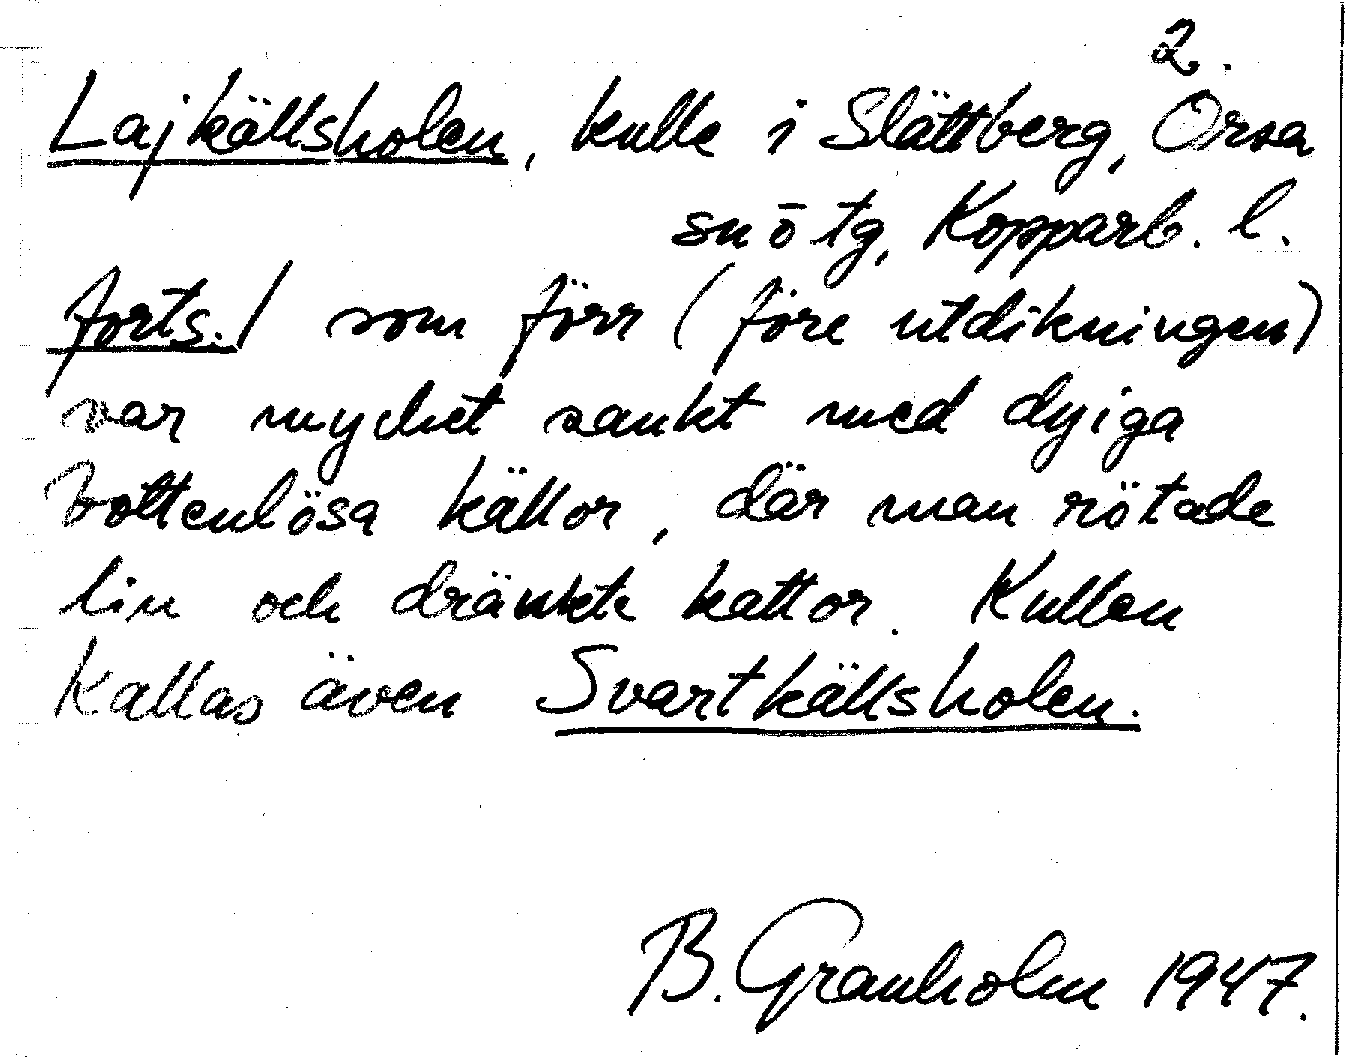 2.
Lajkällsholen, kulle i Slättberg, Orsa
sn ō tg, Kopparb. l.
forts./ som förr (före utdikningen)
var mycket sankt med dyiga
bottenlösa källor, där man rötade
lin och dränkte kattor. Kullen
kallas även Svartkällsholen.
B. Granholm 1947.